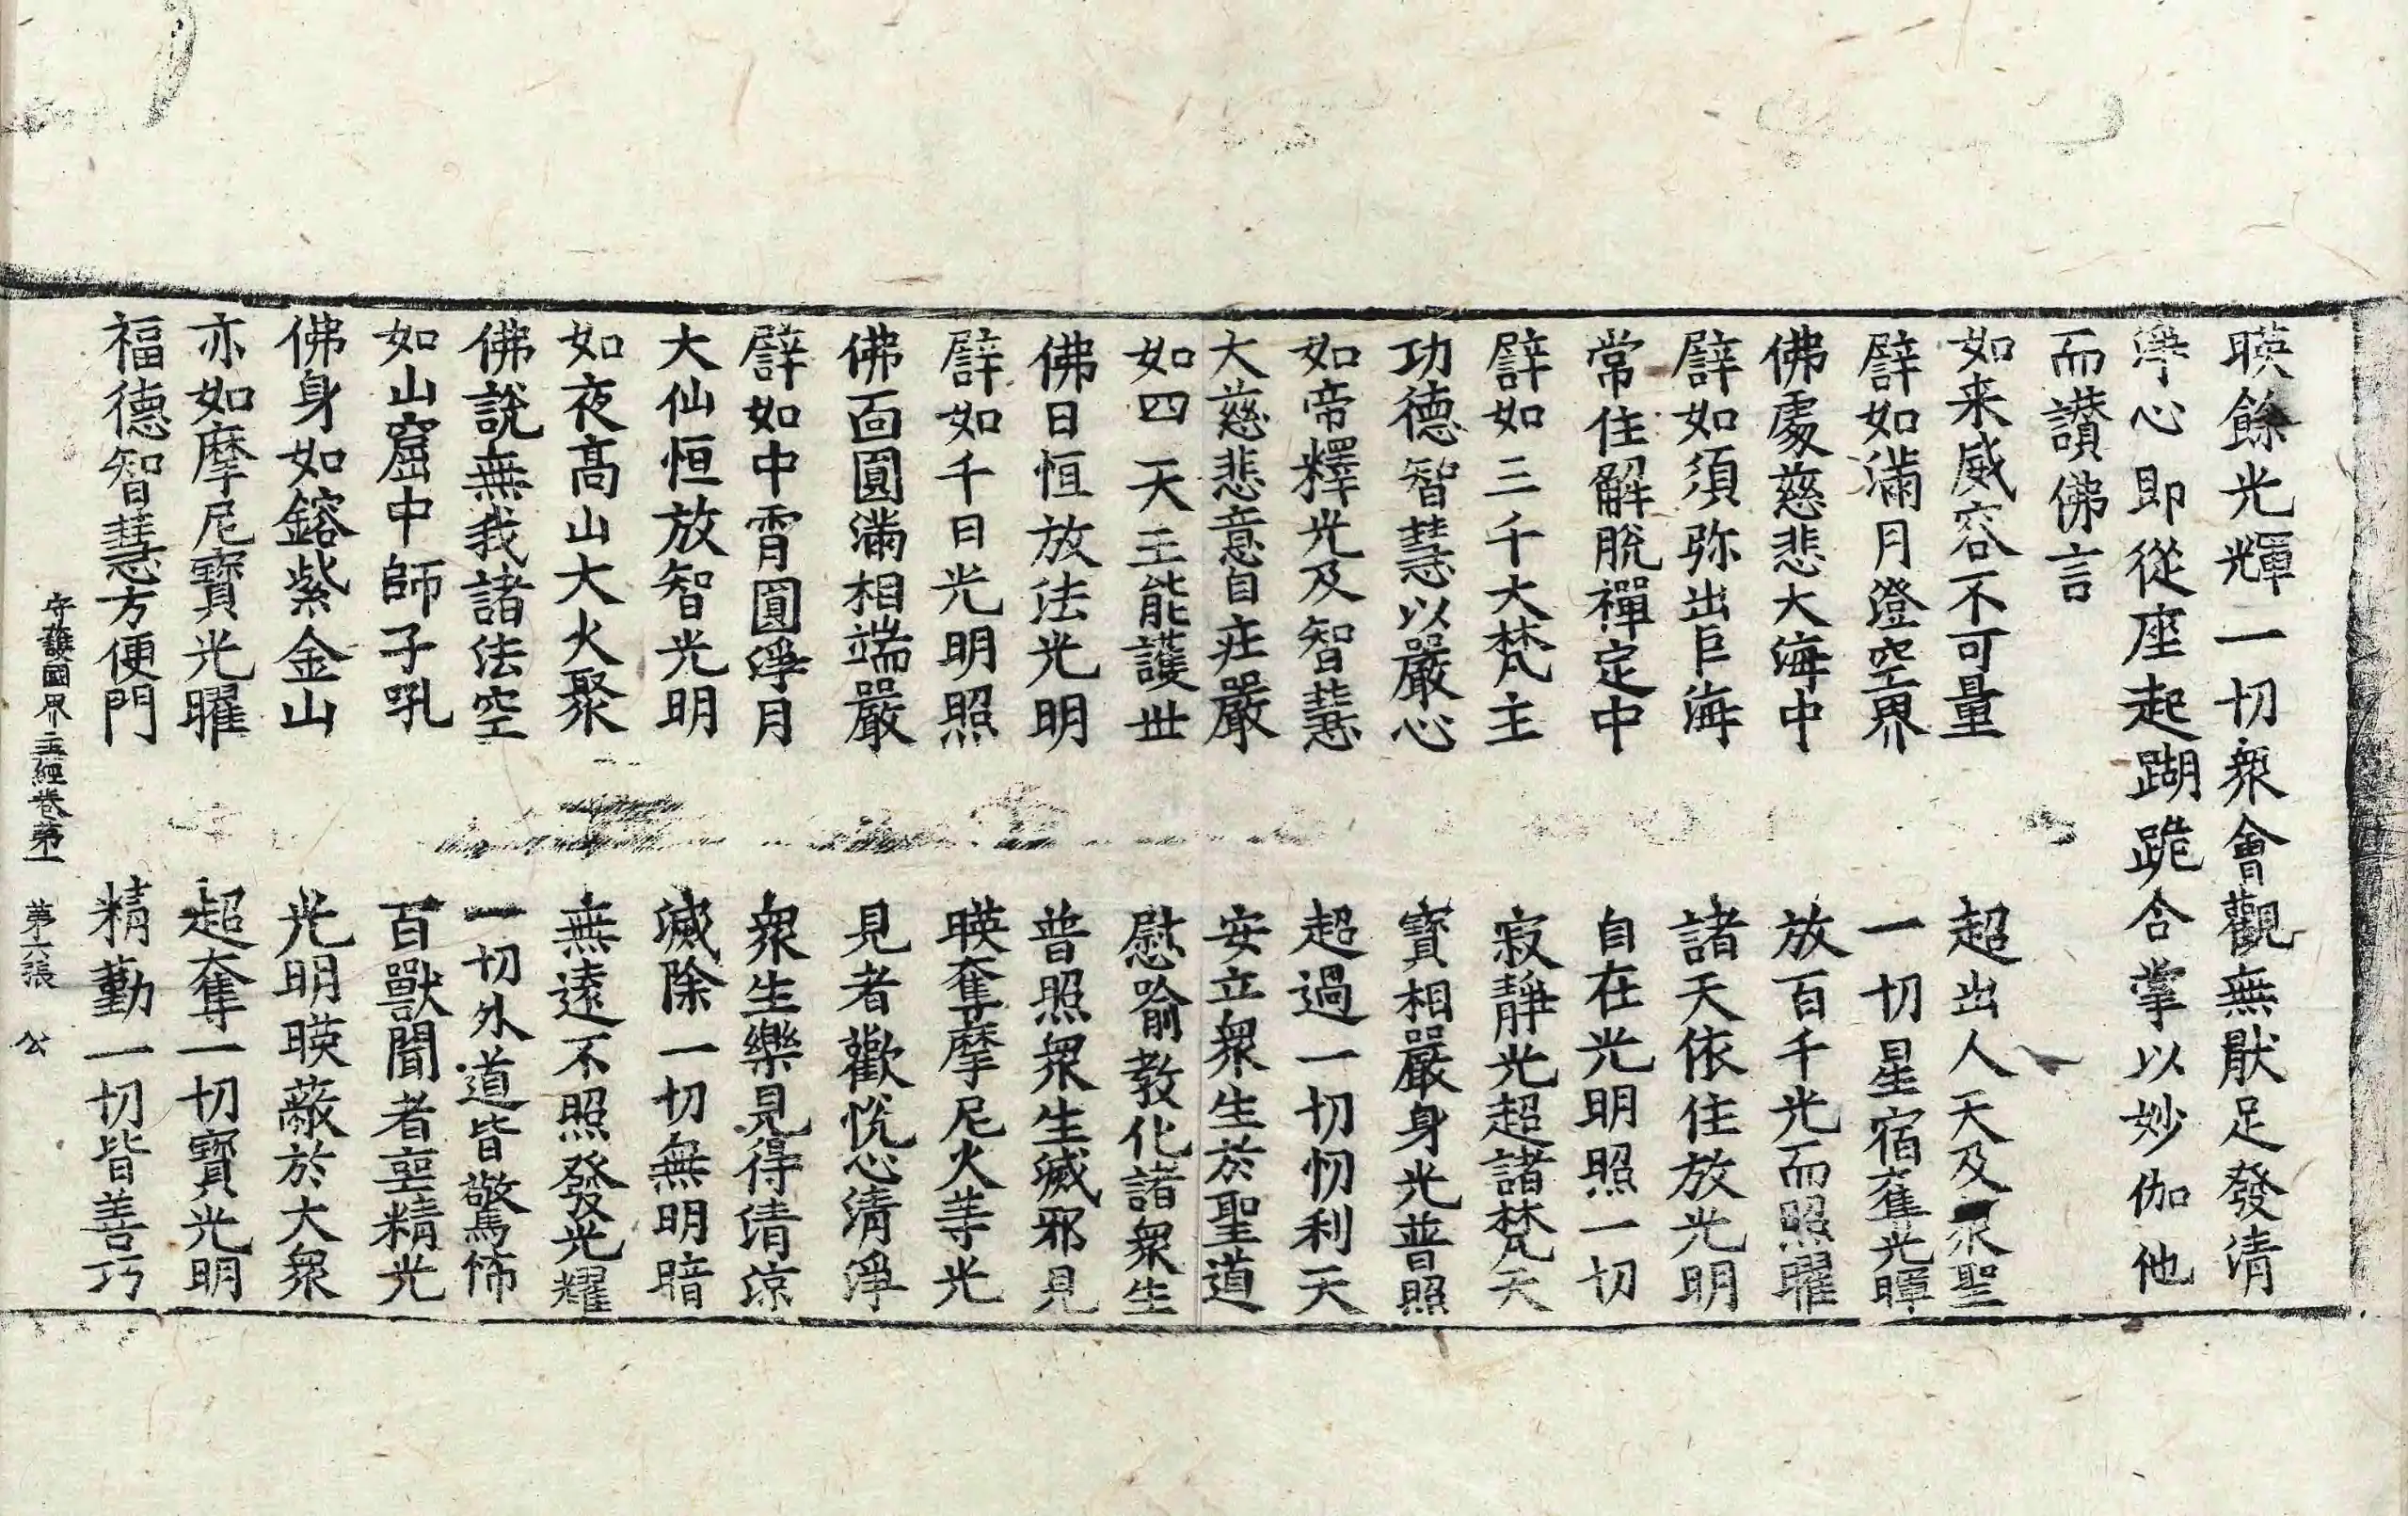 暎餘光輝一切衆會觀無猒足發清
淨心即從座起踟跪合掌以妙伽他
而讃佛言
如来威容不可量　超出人天及衆聖
譬如滿月澄空界　一切星宿奪光暉
佛處慈悲大海中　放百千光而照曜
譬如須弥出巨海　諸天依住放光明
常住解脫禪定中　自在光明照一切
譬如三千大梵主　寂靜光超諸梵天
功德智慧以嚴心　寶相嚴身光普照
如帝釋光及智慧　超過一切忉利天
大慈悲意自庄嚴　安立衆生於聖道
如四天王能護世　慰喻教化諸衆生
佛日恒放法光明　普照衆生滅邪見
譬如千日光明照　暎奪摩尼火等光
佛面圓滿相端嚴　見者歡悅心清淨
譬如中霄圓淨月　衆生樂見得清涼
大仙恒放智光明　滅除一切無明暗
如夜高山大火聚　無遠不照發光耀
佛說無我諸法空　一切外道皆驚怖
如山窟中師子吼　百獸聞者亡精光
佛身如鎔紫金山　光明暎蔽於大衆
亦如摩尼寶光曜　超奪一切寶光明
福德智慧方便門　精勤一切皆善巧
守護國界主經卷第一　第六張　公